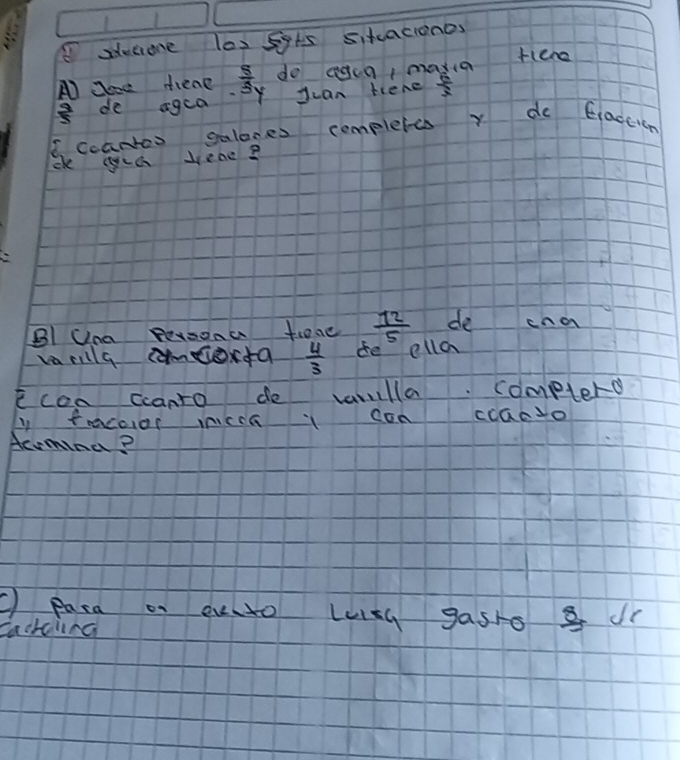 solucione los sgts situacionos
A) Jose tiene 5/3 de agua, maria tiene
de agua . y Juan tiene
¿ Ccantos galones completos y de fraccion
de agua tiene?
B) Una Persona tiene 12/5 de una
varilla corta 4/3 de ella
¿ con ccanto de varilla completo
y fraccion inicca y con ccanto
termina?
C) Para un evento Luisa gasto de
cartulina